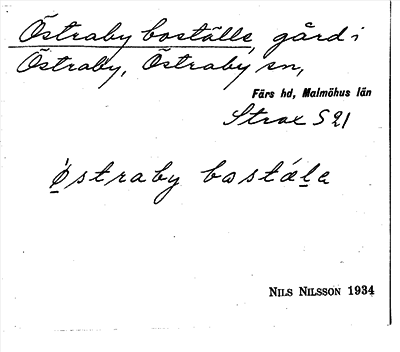 Östraby boställe, gård i
Östraby, Östraby sn,
Färs hd, Malmöhus län
Strax S 21
östraby bostäla
NILS NILSSON 1934